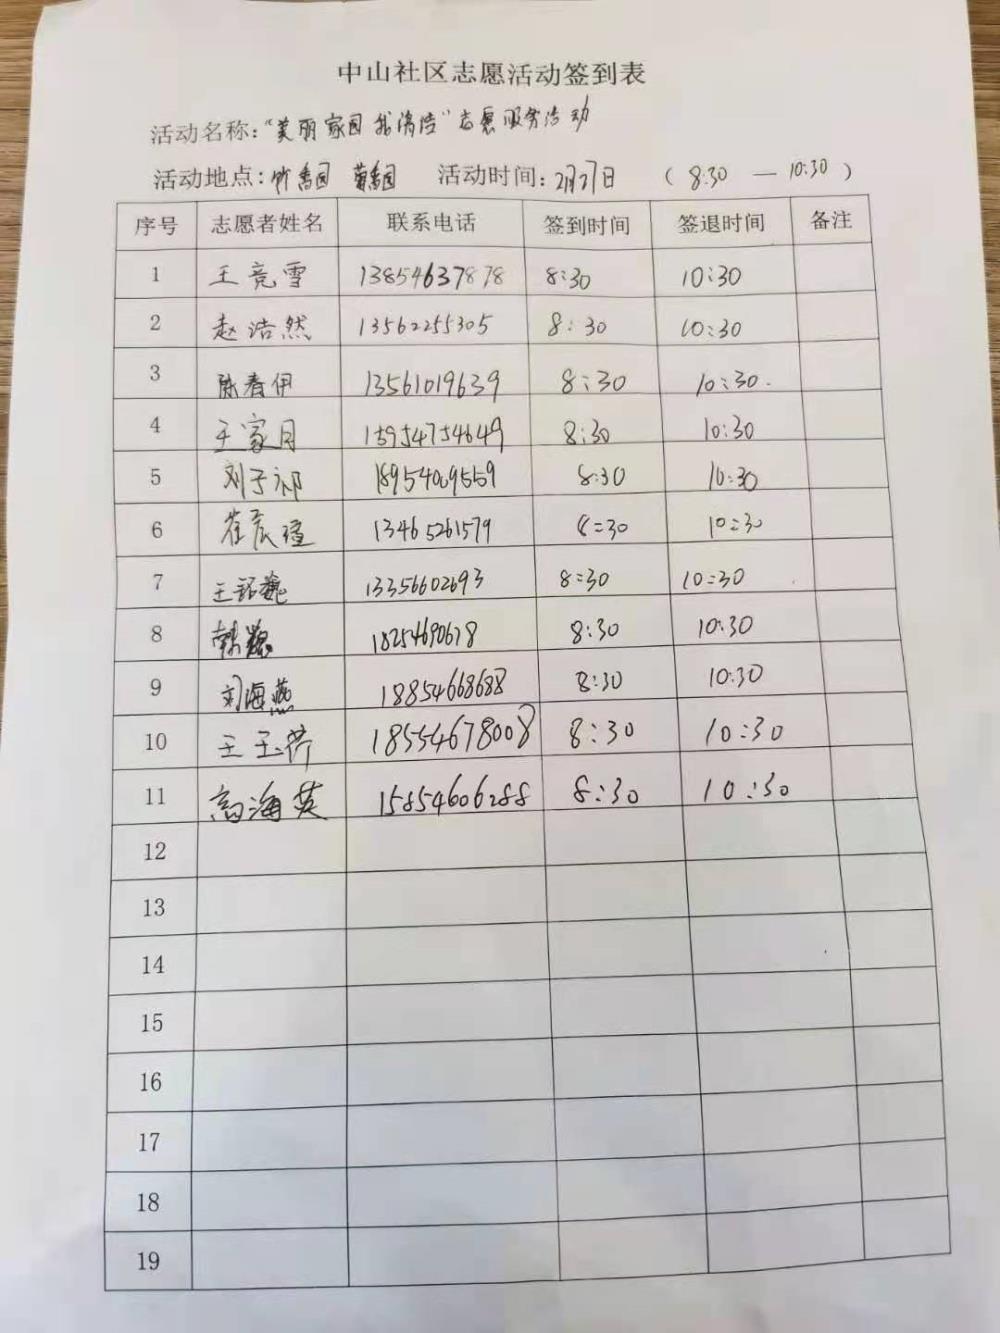 中山社区志愿活动签到表
活动名称:"美丽家园 我清洁"志愿服务活动
活动地点:竹香园 菊香园 活动时间:2月27日 (8:30 — 10:30)
序号 志愿者姓名 联系电话 签到时间 签退时间 备注
1 王竞雪 13854637878 8:30 10:30
2 赵浩然 13562255305 8:30 10:30
3 陈春伊 13561019639 8:30 10:30.
4 王家月 15954754649 8:30 10:30
5 刘子祁 18954009559 8:30 10:30
6 崔辰瑄 13465261579 8:30 10:30
7 王铭巍 13356602693 8:30 10:30
8 韩 18254690678 8:30 10:30
9 刘海燕 18854668688 8:30 10:30
10 王玉荷 18554678008 8:30 10:30
11 高海英 15854606288 8:30 10:30
12
13
14
15
16
17
18
19